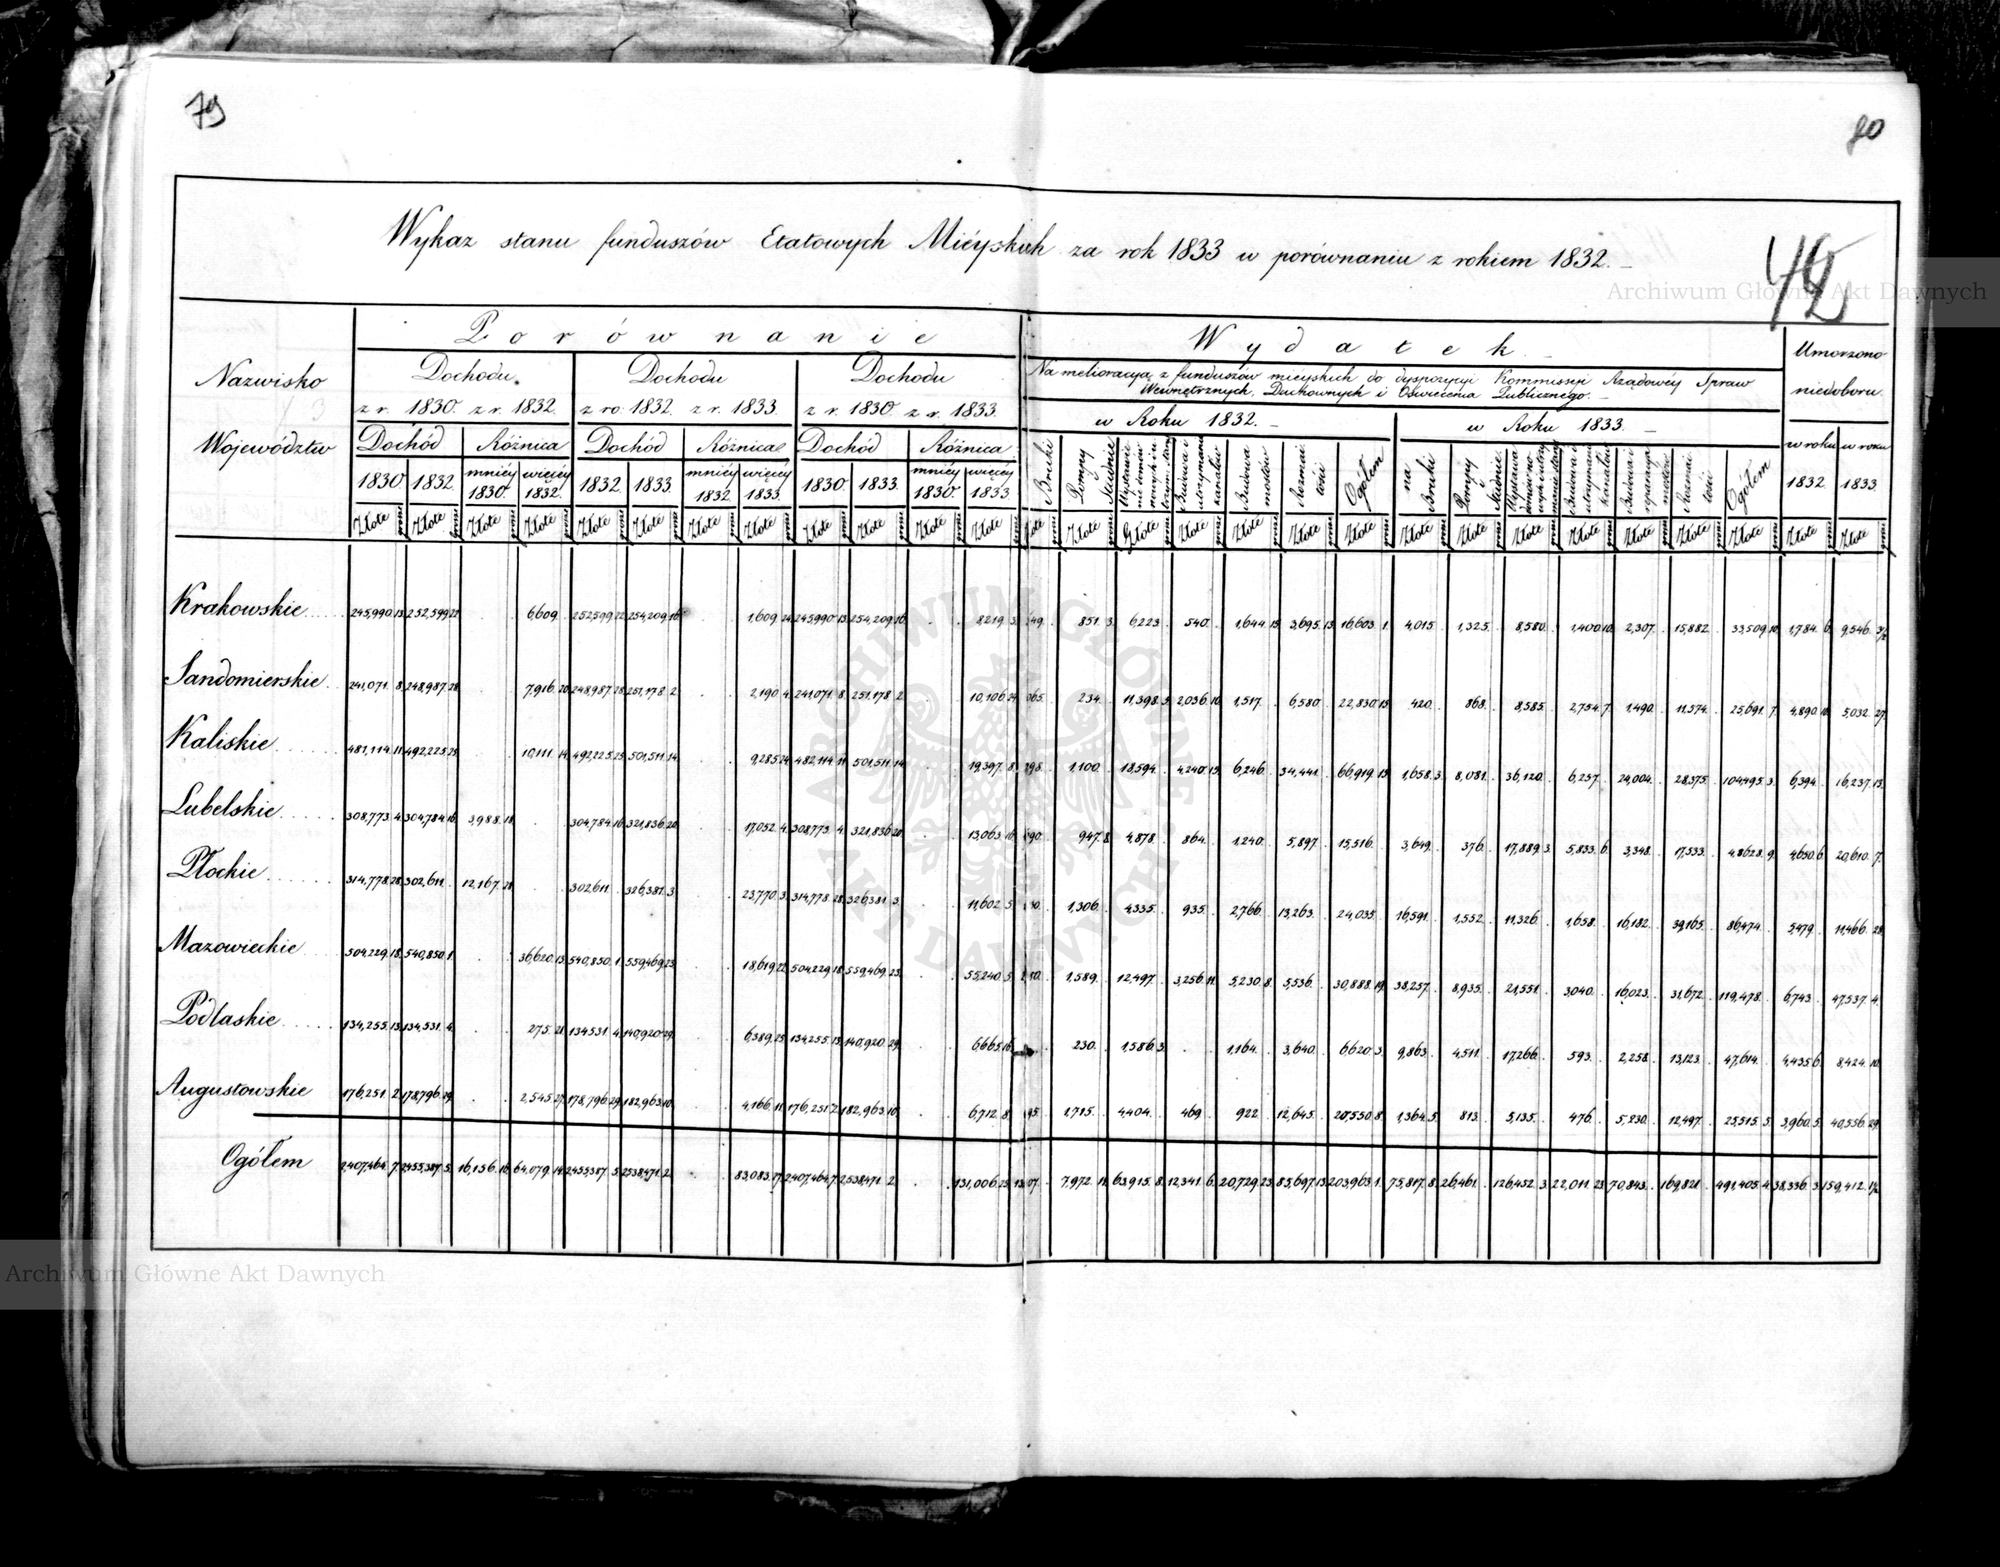 79
80
Wykaz stanu funduszów Etatowych Miéyskich za rok 1833 w porównaniu z rokiem 1832.
42
Archiwum Główne Akt Dawnych
Nazwisko Województw
Porównanie
Wydatek
Umorzono niedoboru
Dochodu z r. 1830. z r. 1832.
Dochodu z ro. 1832. z r. 1833.
Dochodu z r. 1830 z r. 1833.
Na melioracyą z funduszów mieyskich do dyspozycyi Kommissyi Rządowéy Spraw
Wewnętrznych, Duchownych i Oświecenia Publicznego.
w Roku 1832.
w Roku 1833.
w roku 1832
w roku 1833
Dochód Różnica Dochód Różnica Dochód Różnica
1830 1832 mniéy 1830. więcéy 1832. 1832 1833. mniéy 1832 więcéy 1833. 1830 1833. mniéy 1830. więcéy 1833
Bruki Pompy i Studnie Budowa mostów Rozmaitości Ogółem na Bruki Pompy i Studnie Rozmaitości Ogółem
Złote Złote Złote Złote Złote Złote Złote Złote Złote Złote Złote Złote Złote Złote Złote Złote Złote Złote Złote Złote Złote Złote Złote Złote Złote Złote Złote
Krakowskie 245,990.13 252,599.22 . . 6,609. . 252,599.22 254,209.16 . . 1,609.24 245,990.13 254,209.16 . . 8,219.3 851.3 6,223. 540. 1,644.15 3,695.13 16,603.1 4,015. 1,325. 8,580. 1,400.10 2,307. 15,882. 33,509.10 1,784.6 9,546.3½
Sandomierskie 241,071.8 248,987.28 . . 7,916.20 248,987.28 251,178.2 . . 2,190.4 241,071.8 251,178.2 . . 10,106.24 234. 11,398.5 2,036.10 1,517. 6,580. 22,830.15 420. 868. 8,585. 2,754.7 1,490. 11,574. 25,691.7 4,890.10 5,032.27
Kaliskie 481,114.11 492,225.25 . . 10,111.14 492,225.25 501,511.14 . . 9,285.24 482,114.11 501,511.14 . . 19,397.8 1,100. 18,594. 4,240.15 6,246. 34,441. 66,919.15 1,658.3 8,081. 36,120. 6,257. 24,004. 28,375. 104,495.3 6,394. 16,237.13
Lubelskie 308,773.4 304,784.16 3,988.18 . . 304,784.16 321,836.20 . . 17,052.4 308,773.4 321,836.20 . . 13,063.16 947.8 4,878. 864. 1,240. 5,897. 15,516. 3,649. 376. 17,889.3 5,833.6 3,348. 17,533. 48,628.9 4,650.6 20,610.7
Płockie 314,778.28 302,611. 12,167.28 . . 302,611. 326,381.3 . . 23,770.3 314,778.28 326,381.3 . . 11,602.5 1,306. 4,335. 935. 2,766. 13,263. 24,035. 16,591. 1,552. 11,326. 1,658. 16,182. 39,165. 86,474. 5,479. 11,466.28
Mazowieckie 504,229.18 540,850.1 . . 36,620.13 540,850.1 559,469.23 . . 18,619.22 504,229.18 559,469.23 . . 55,240.5 1,589. 12,497. 3,256.11 5,230.8 5,536. 30,888.19 38,257. 8,935. 21,551. 3,040. 16,023. 31,672. 119,478. 6,743. 47,537.4
Podlaskie 134,255.13 134,531.4 . . 275.21 134,531.4 140,920.29 . . 6,389.25 134,255.13 140,920.29 . . 6,665.16 230. 1,586.3 . . 1,164. 3,640. 6,620.3 9,863. 4,511. 17,266. 593. 2,258. 13,123. 47,614. 4,435.6 8,424.10
Augustowskie 176,251.2 178,796.29 . . 2,545.27 178,796.29 182,963.10 . . 4,166.11 176,251.2 182,963.10 . . 6,712.8 1,715. 4,404. 469. 922. 12,645. 20,550.8 1,364.5 813. 5,135. 476. 5,230. 12,497. 25,515.5 3,960.5 40,556.29
Ogółem 2,407,464.7 2,455,387.5 16,156.16 64,079.14 2,455,387.5 2,538,471.2 . . 83,083.17 2,407,464.7 2,538,471.2 . . 131,006.25 7,972.11 63,915.8 12,341.6 20,729.23 85,697.13 203,963.1 75,817.8 26,461. 126,452.3 22,011.23 70,843. 169,821. 491,405.4 38,336.3 159,412.1½
ARCHIWUM GŁÓWNE AKT DAWNYCH
Archiwum Główne Akt Dawnych